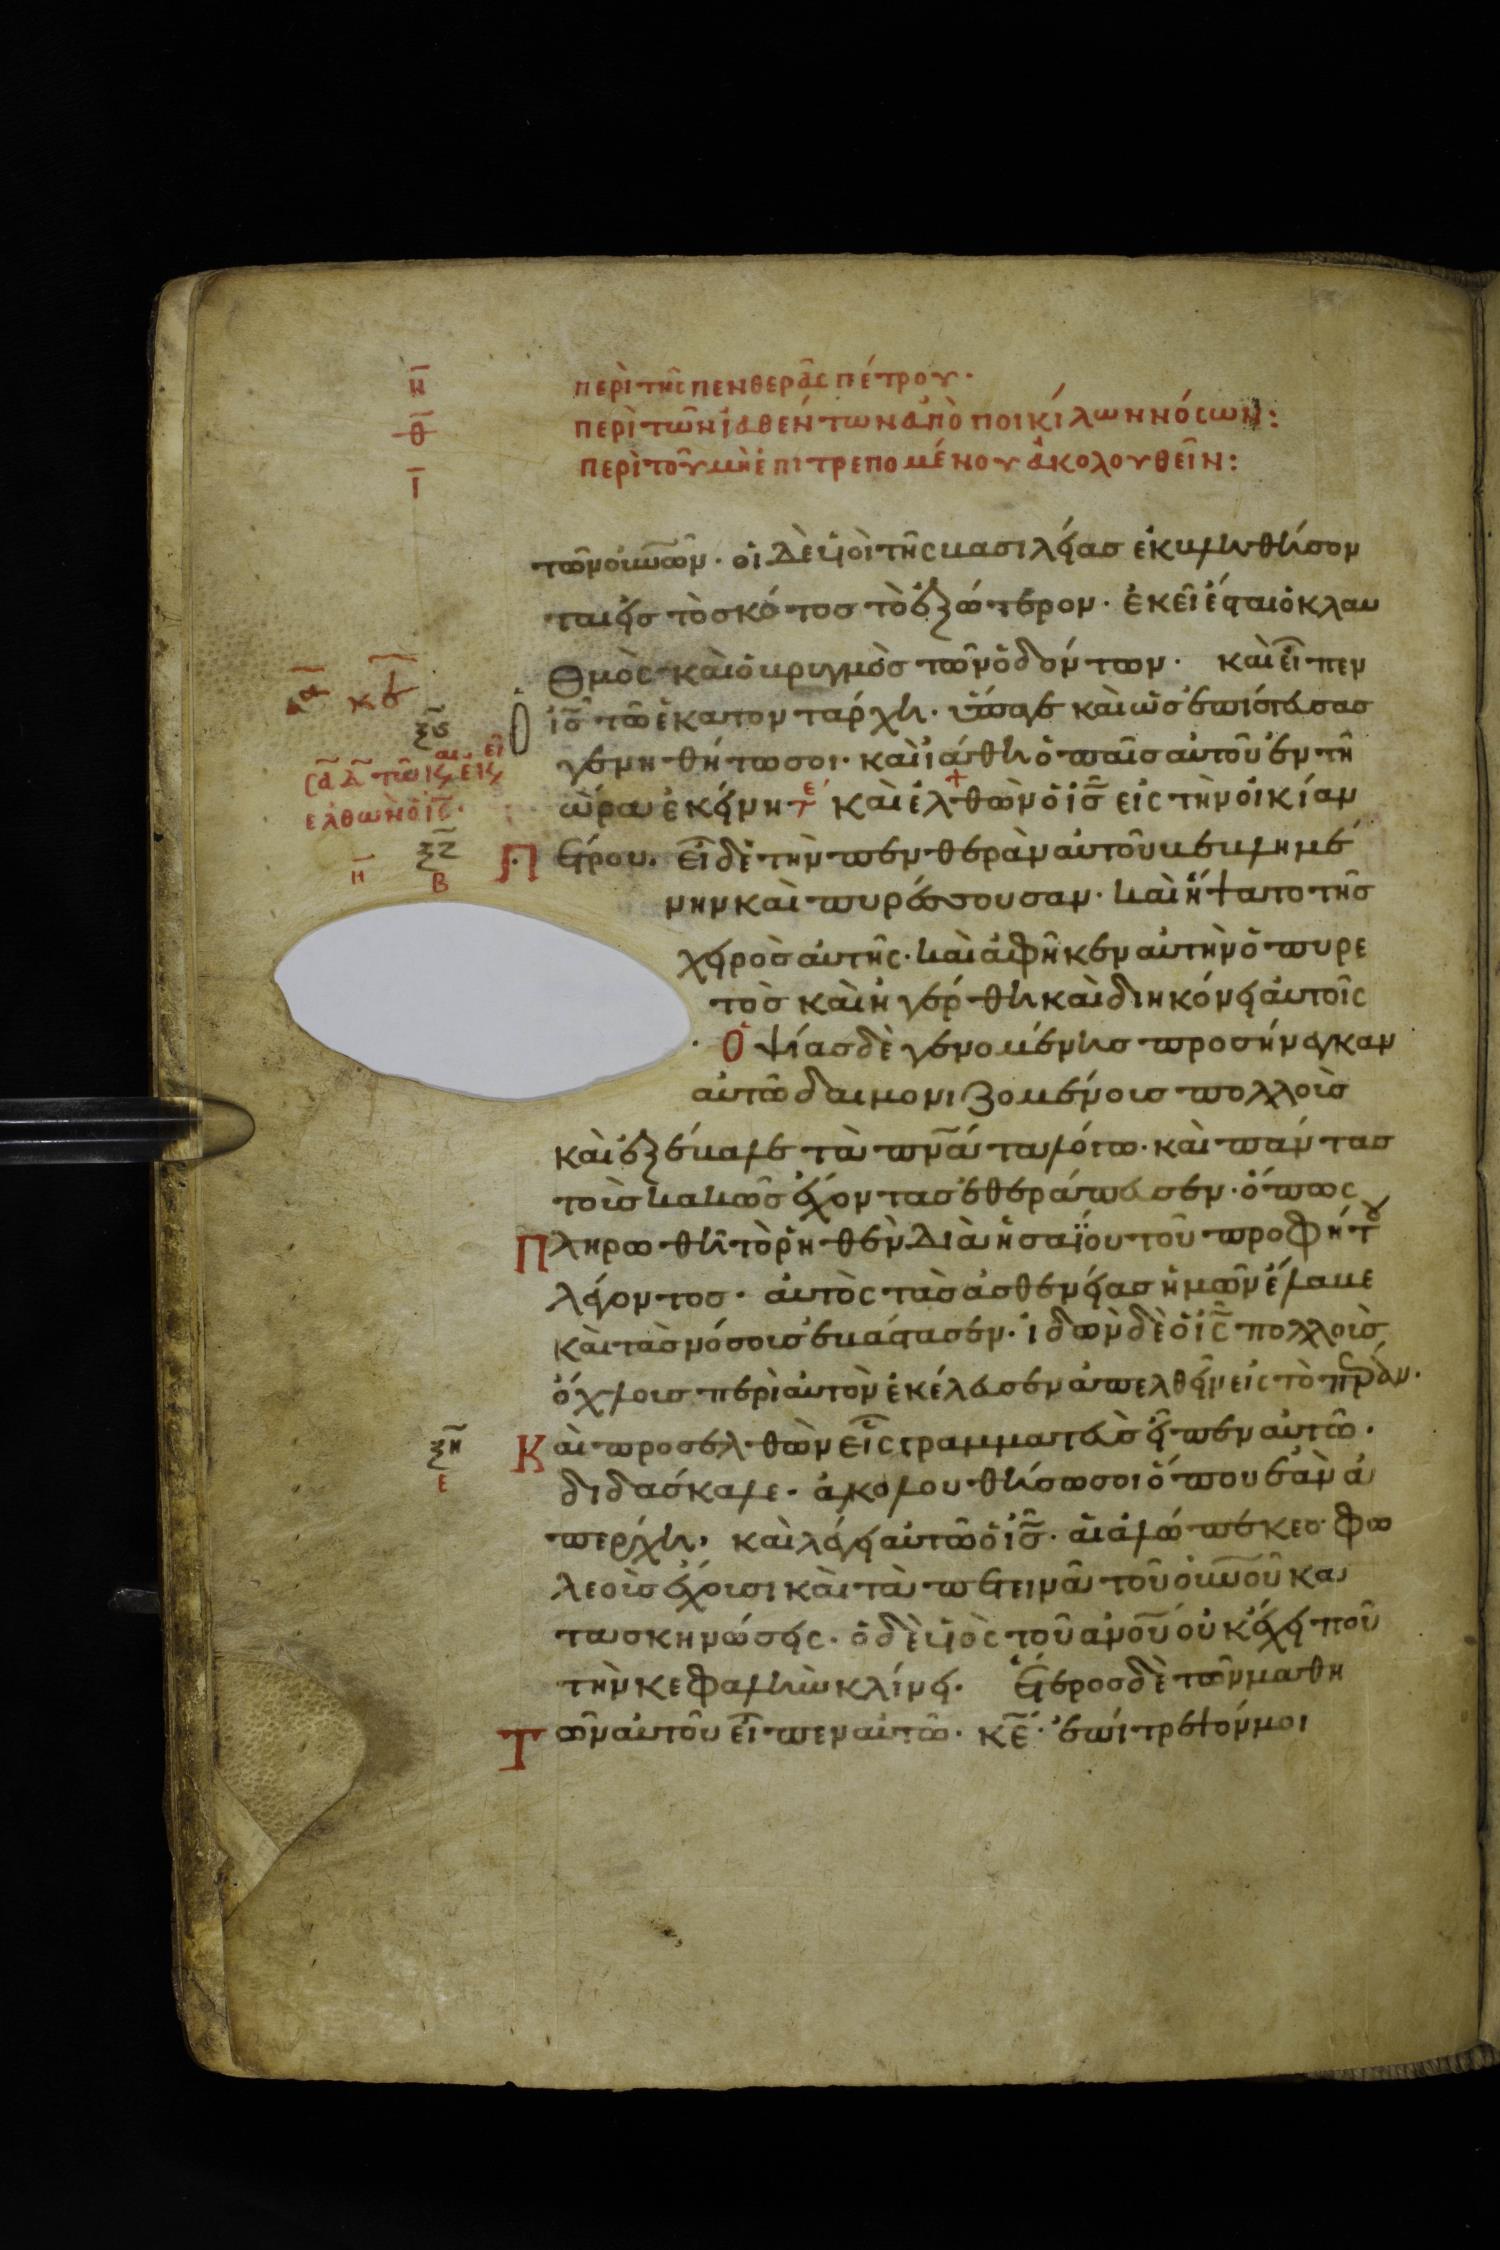 η̅ περὶ τῆς πενθερᾶς πέτρου·
θ̅ περὶ τῶν ἰαθέντων ἀπὸ ποικίλων νόσων:
ι̅ περὶ τοῦ μὴ ἐπιτρεπομένου ἀκολουθεῖν:
τῶν οὐν̅ῶν· οἱ δὲ υἱοὶ τῆς βασιλείας ἐκβληθήσον
ται εἰς τὸ σκότος τὸ ἐξώτερον· ἐκεῖ ἔσται ὁ κλαυ
θμὸς καὶ ὁ βριγμὸς τῶν ὀδόντων· καὶ εἶπεν
ἰ̅ς̅ τῶ ἑκατοντάρχη· ὕπαγε καὶ ὡς ἐπίστευσας
γενηθήτω σοι· καὶ ἰάθη ὁ παῖς αὐτοῦ ἐν τῆ
ὥρα ἐκείνη τε καὶ ἐλθὼν ὁ ἰ̅ς̅ εἰς τὴν οἰκίαν
Πέτρου. εἶδε τὴν πενθερὰν αὐτοῦ βεβλημέ
νην καὶ πυρέσσουσαν· καὶ ἥψατο τῆς
χειρὸς αὐτῆς· καὶ ἀφῆκεν αὐτὴν ὁ πυρε
τὸς καὶ ἠγέρθη καὶ διηκόνει αὐτοῖς
· Ὀψίας δὲ γενομένης προσήνεγκαν
αὐτῶ δαιμονιζομένους πολλοὺς
καὶ ἐξέβαλε τὰ πν̅ά̅τα λόγω· καὶ πάντας
τοὺς κακῶς ἔχοντας ἐθεράπευσεν· ὅπως
Πληρωθῆ τὸ ῥηθὲν διὰ ἠσαΐου τοῦ προφήτου
λέγοντος· αὐτὸς τὰς ἀσθενείας ἡμῶν ἔλαβε
καὶ τὰς νόσους ἐβάστασεν· ἰδὼν δὲ ὁ ἰ̅ς̅ πολλοὺς
ὄχλους περὶ αὐτὸν ἐκέλευσεν ἀπελθεῖν εἰς τὸ πέραν·
Καὶ προσελθὼν εἷς γραμματεὺς εἶπεν αὐτῶ·
διδάσκαλε· ἀκολουθήσω σοι ὅπου ἐὰν ἀ
πέρχη, καὶ λέγει αὐτῶ ὁ ἰ̅ς̅· αἱ ἀλώπεκες φω
λεοὺς ἔχουσι καὶ τὰ πετεινὰ τοῦ οὐν̅οῦ κα
τασκηνώσεις· ὁ δὲ υἱὸς τοῦ ἀν̅ο̅υ̅ οὐκ ἔχει ποῦ
τὴν κεφαλὴν κλίνει· ἕτερος δὲ τῶν μαθη
Τῶν αὐτοῦ εἶπεν αὐτῶ· κ̅ε̅· ἐπίτρεψόν μοι
κδ
ξϛ̅
ἐλθὼν ὁ ἰ̅ς̅·
ξζ̅
η̅ β
ξη̅
ε